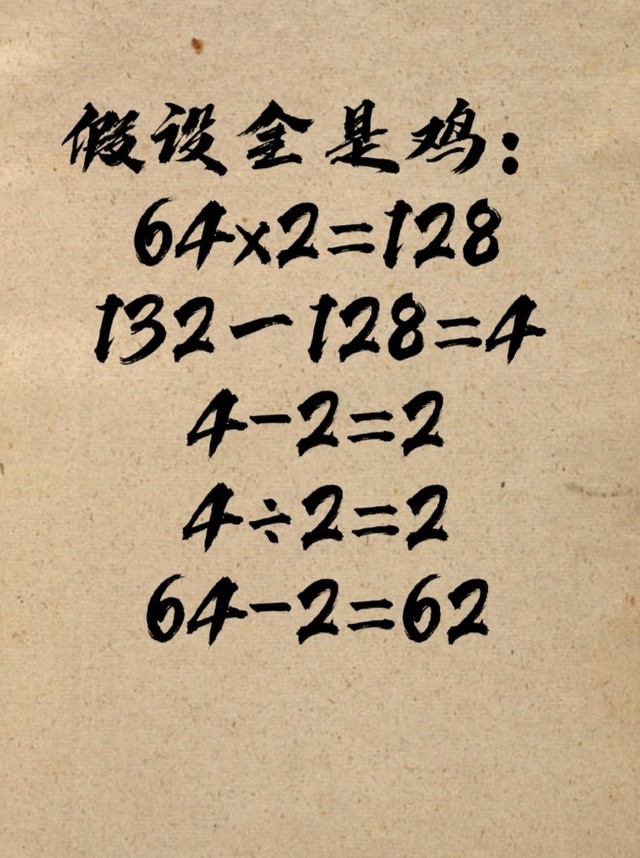 假设全是鸡：
64×2=128
132-128=4
4-2=2
4÷2=2
64-2=62